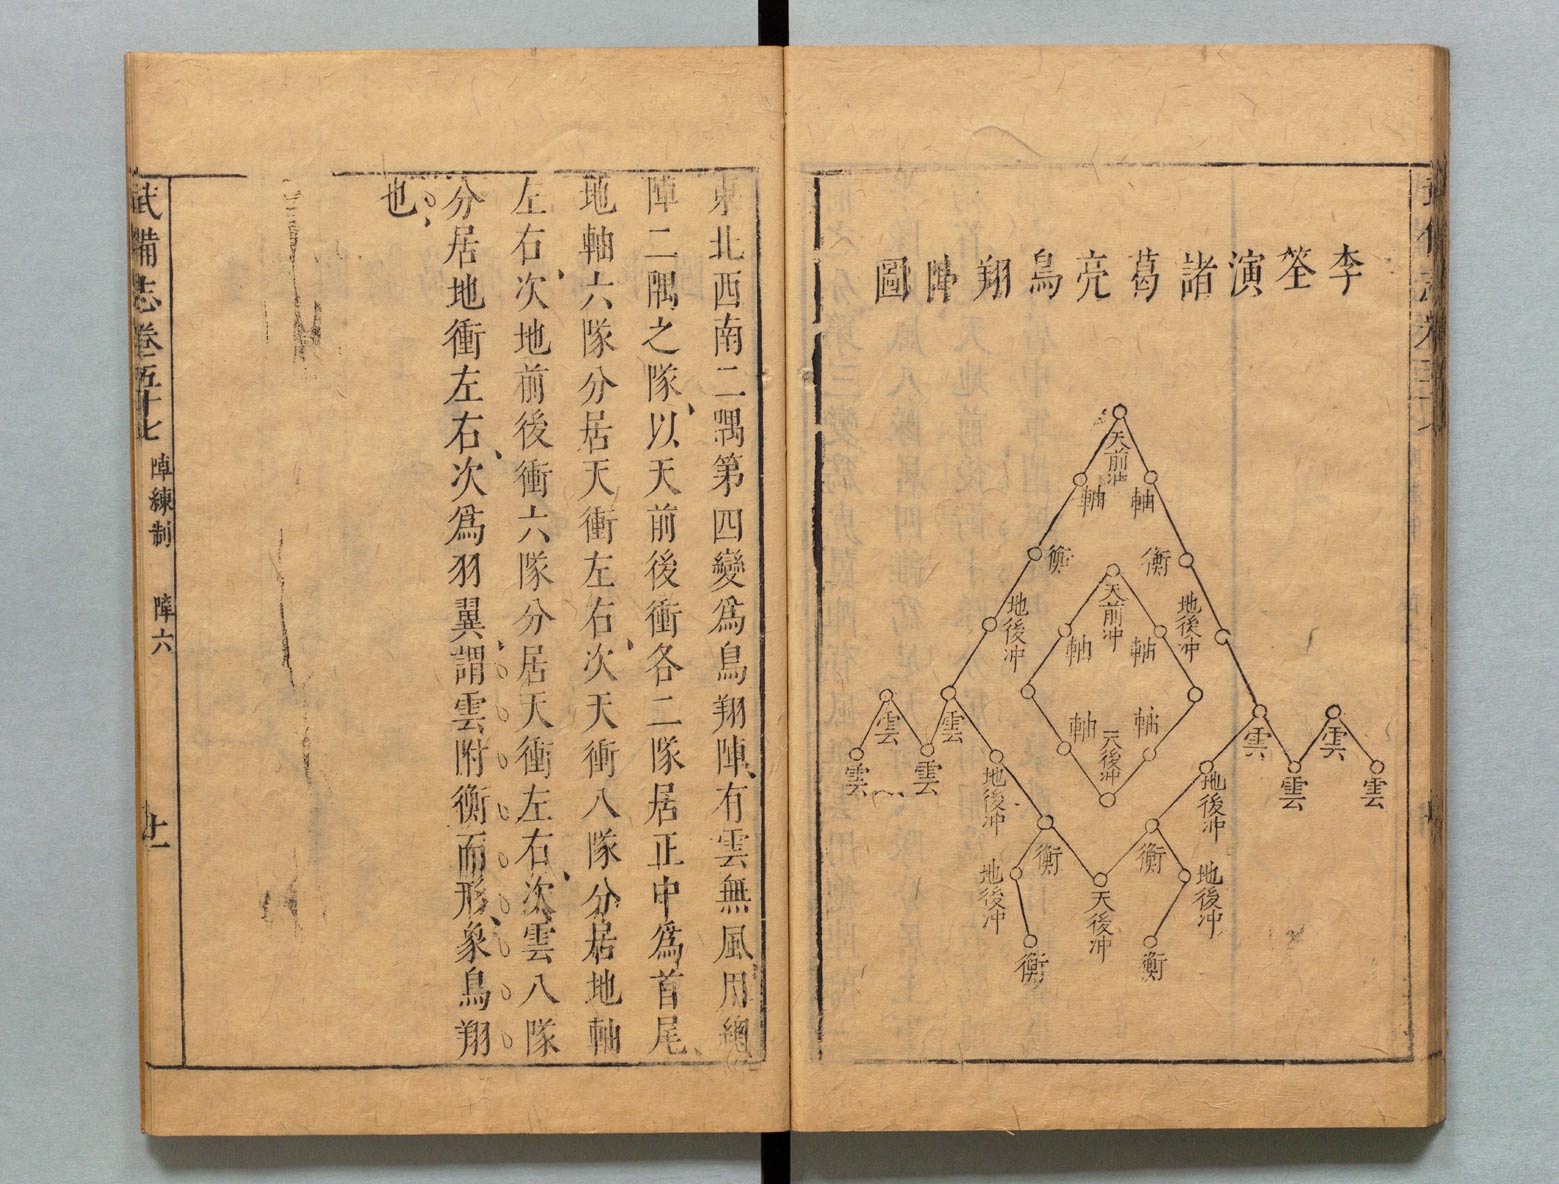 李筌演諸葛亮鳥翔陣圖
天前冲
軸
軸
衡
衡
地後冲
地後冲
天前冲
軸
軸
軸
軸
天後冲
雲
雲
雲
雲
雲
雲
雲
雲
地後冲
地後冲
衡
衡
地後冲
地後冲
天後冲
衡
衡
東北西南二隅第四變爲鳥翔陣有雲無風用緫
陣二隅之隊以天前後衝各二隊居正中爲首尾
地軸六隊分居天衝左右次天衝八隊分居地軸
左右次地前後衝六隊分居天衝左右次雲八隊
分居地衝左右次爲羽翼謂雲附衡而形象鳥翔
也
武備志卷五十七 陣練制 陣六 十一